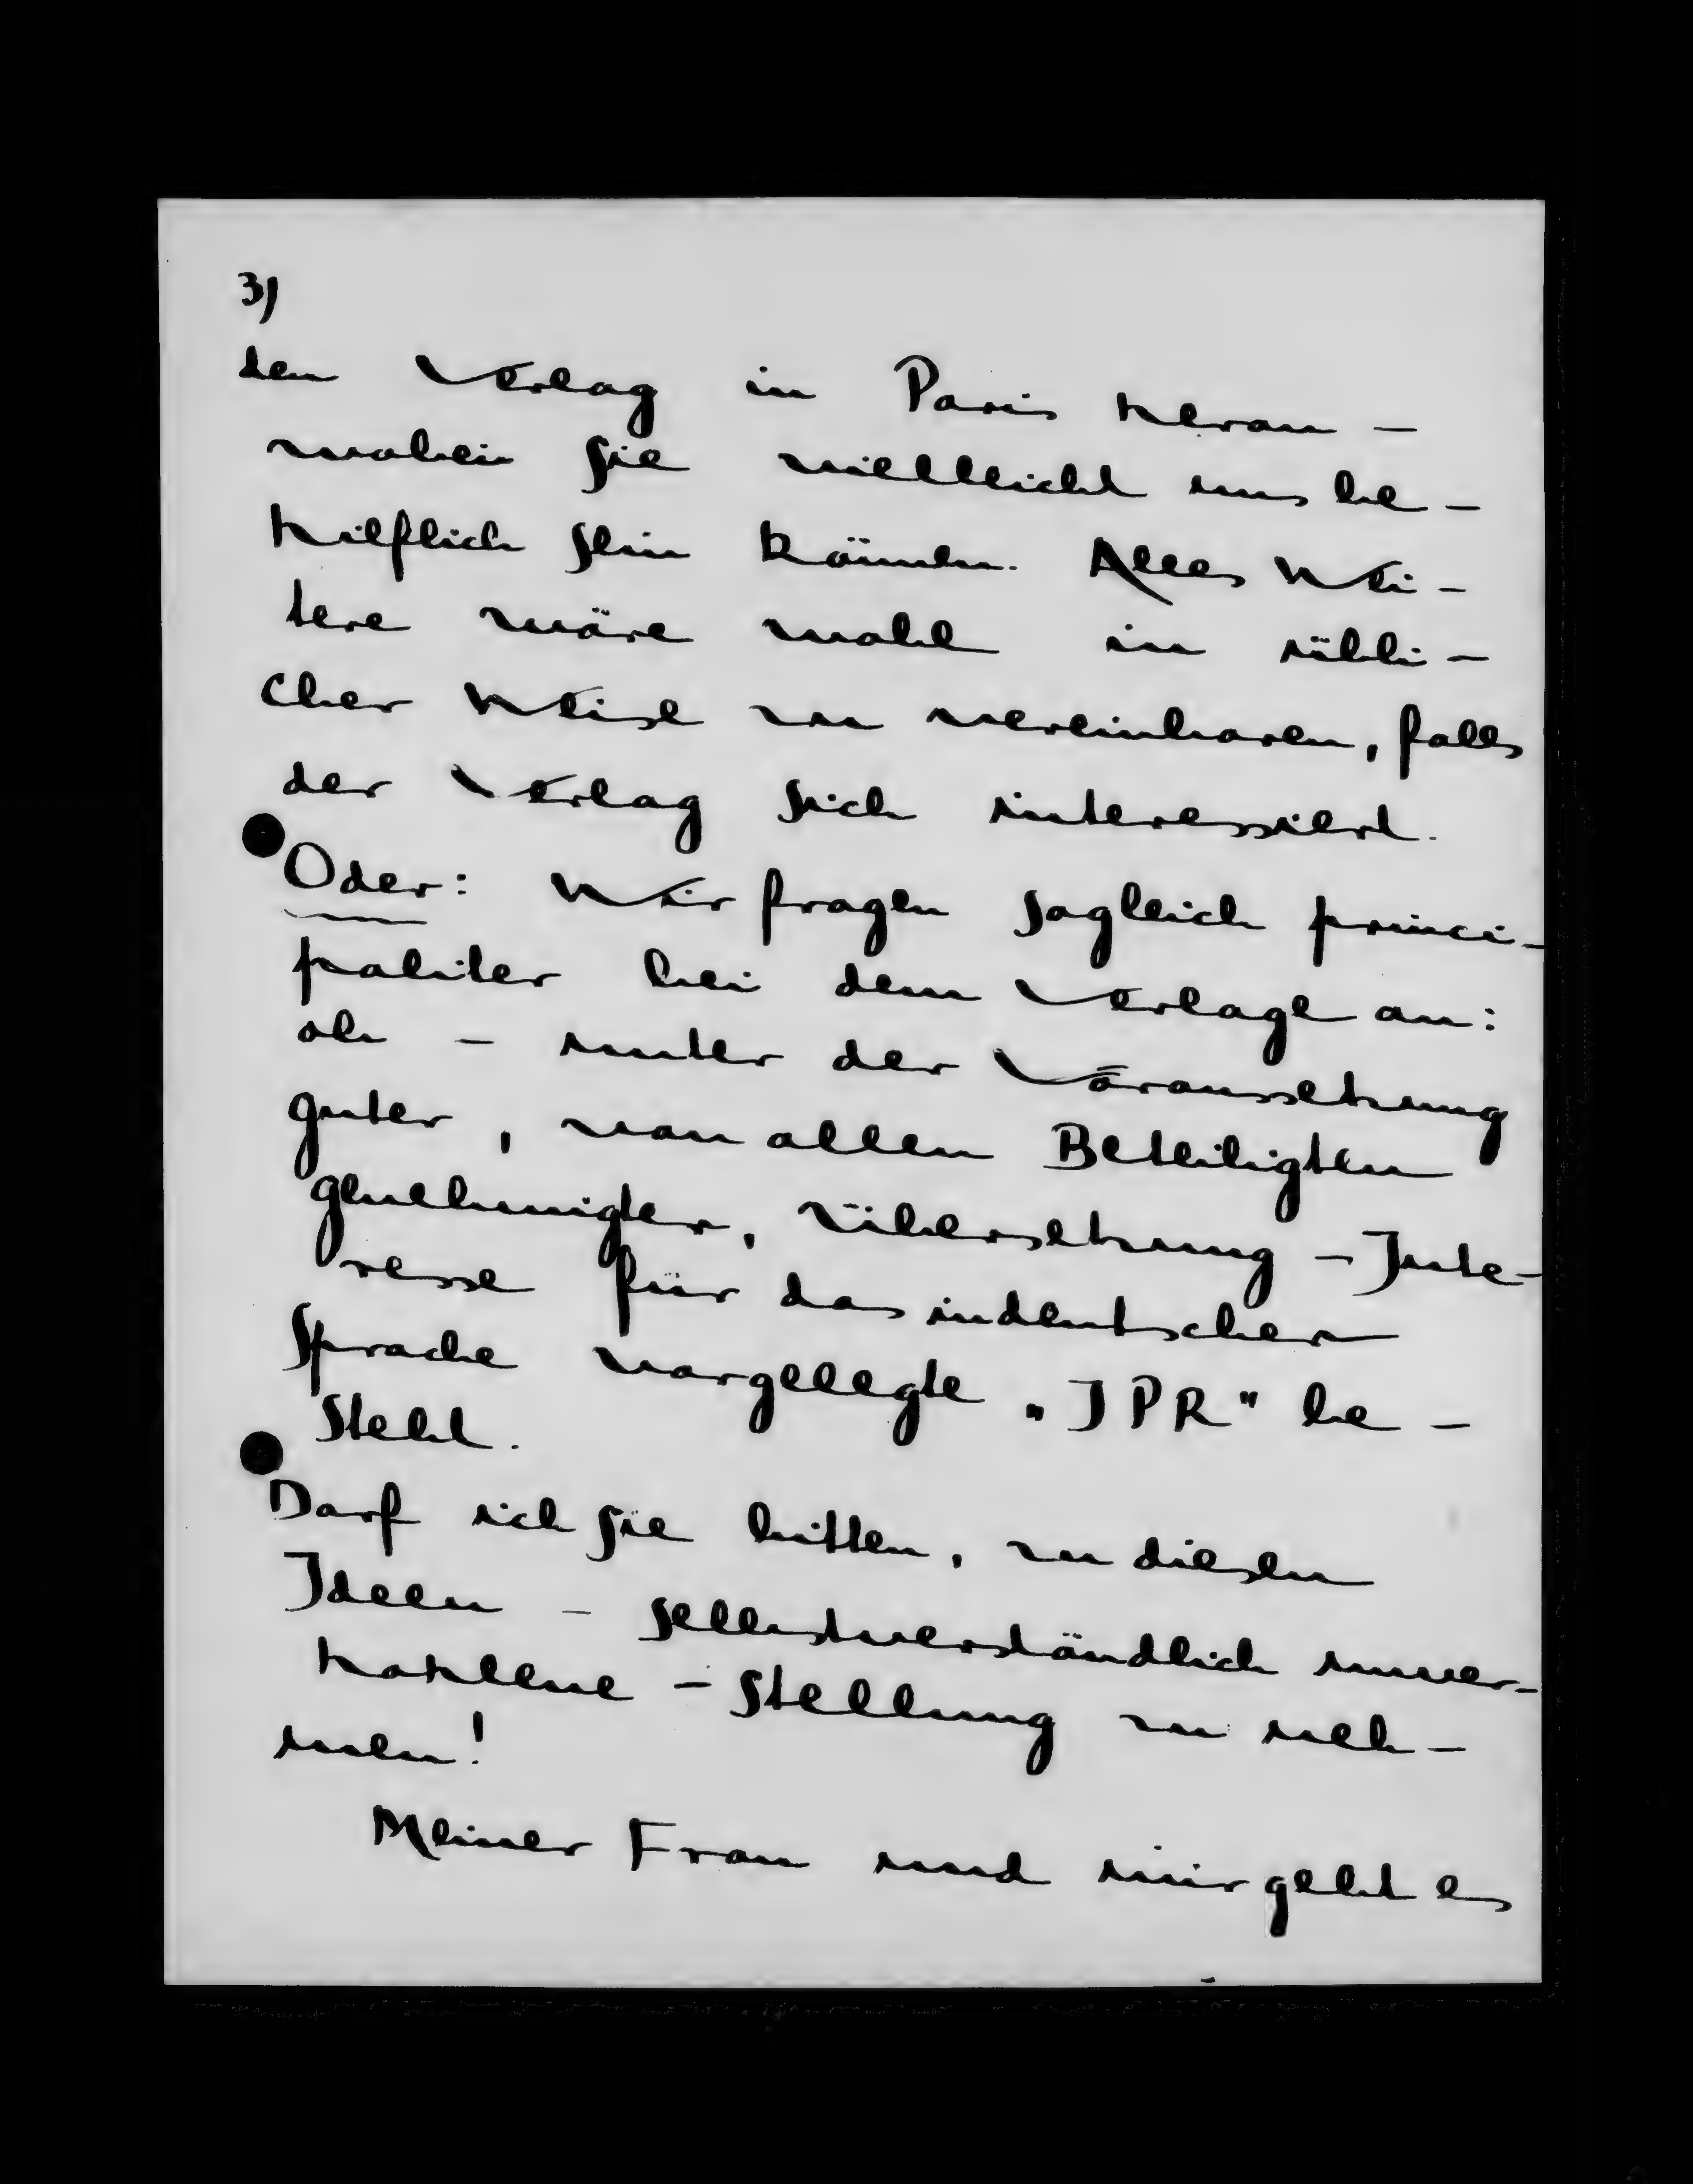 3)
den Verlag in Paris heran –
wobei Sie vielleicht uns be-
hilflich sein können. Alles Wei-
tere wäre wohl in übli-
cher Weise zu vereinbaren, falls
der Verlag sich interessiert.
Oder: Wir fragen sogleich princi-
paliter bei dem Verlage an:
ob – unter der Voraussetzung
guter, von allen Beteiligten
genehmigter, Übersetzung – Inte-
resse für das in deutscher
Sprache vorgelegte „IPR" be-
steht.
Darf ich Sie bitten, zu diesen
Ideen – selbstverständlich unver-
hohlene – Stellung zu neh-
men!
Meiner Frau und mir geht es